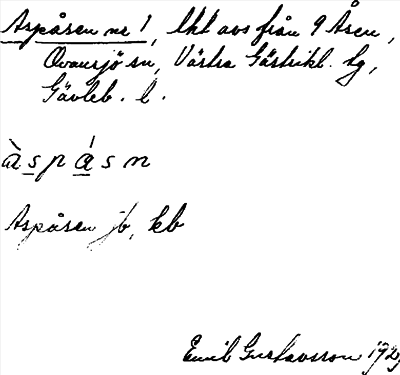 Aspåsen nr 1, lht avs från 9 Åsen,
Ovansjö sn, Västra Gästrikl. tg,
Gävleb. l.
àspásn
Aspåsen jb, kb
Emil Gustavsson